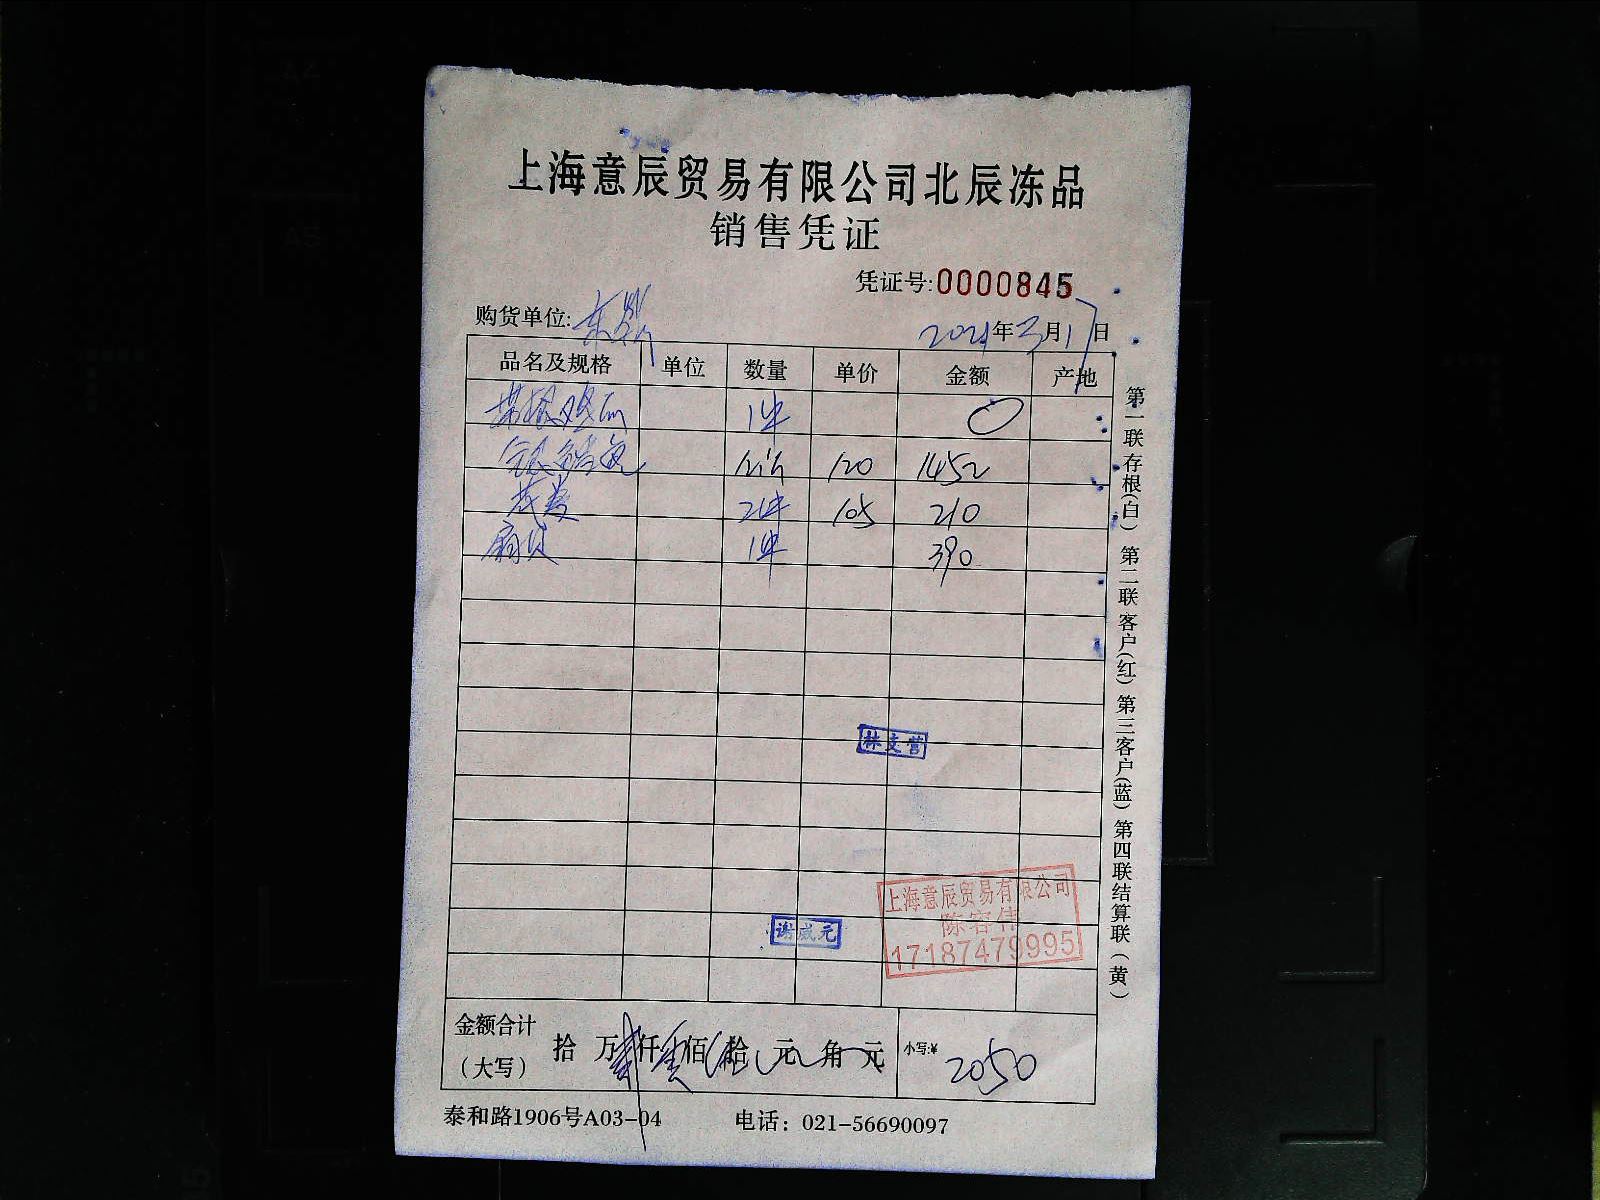 上海意辰贸易有限公司北辰冻品
销售凭证
凭证号:0000845
购货单位:
2021年3月17日
品名及规格 单位 数量 单价 金额 产地
1件 0
120 1452
2件 105 210
扇贝 1件 390
林支营
谢成元
上海意辰贸易有限公司
陈容伟
17187479995
金额合计
(大写)
拾 万 仟 佰 拾 元 角 元
小写:¥ 2050
泰和路1906号A03-04 电话：021-56690097
第一联存根(白) 第二联客户(红) 第三客户(蓝) 第四联结算联(黄)